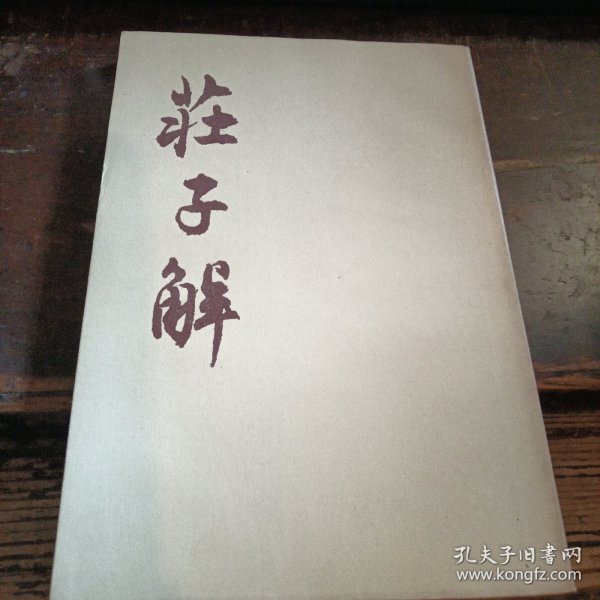 莊子解
孔夫子旧書网
www.kongfz.com